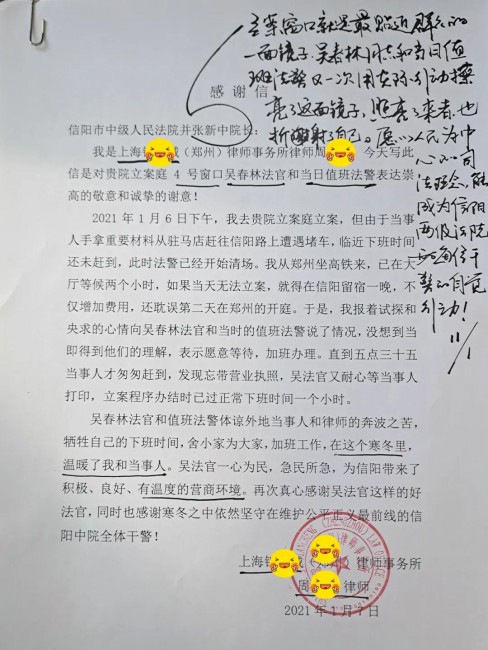 立案窗口就是最贴近群众的
一面镜子。吴春林同志和当日值
班法警又一次用实际行动擦
亮了这面镜子，照亮了来者，也
折射了自己。愿以人民为中
心的司
法理念，能
成为信阳
两级法院
干
警的自觉
行动！
11/1
感谢信
信阳市中级人民法院并张新中院长：
我是上海（郑州）律师事务所律师周，今天写此
信是对贵院立案庭 4 号窗口吴春林法官和当日值班法警表达崇
高的敬意和诚挚的谢意！
2021 年 1 月 6 日下午，我去贵院立案庭立案，但由于当事
人手拿重要材料从驻马店赶往信阳路上遭遇堵车，临近下班时间
还未赶到，此时法警已经开始清场。我从郑州坐高铁来，已在大
厅等候两个小时，如果当天无法立案，就得在信阳留宿一晚，不
仅增加费用，还耽误第二天在郑州的开庭。于是，我报着试探和
央求的心情向吴春林法官和当时的值班法警说了情况，没想到当
即得到他们的理解，表示愿意等待，加班办理。直到五点三十五
当事人才匆匆赶到，发现忘带营业执照，吴法官又耐心等当事人
打印，立案程序办结时已过正常下班时间一个小时。
吴春林法官和值班法警体谅外地当事人和律师的奔波之苦，
牺牲自己的下班时间，舍小家为大家，加班工作，在这个寒冬里，
温暖了我和当事人。吴法官一心为民，急民所急，为信阳带来了
积极、良好、有温度的营商环境。再次真心感谢吴法官这样的好
法官，同时也感谢寒冬之中依然坚守在维护公平正义最前线的信
阳中院全体干警！
上海 律师事务所
周 律师
2021 年 1 月 7 日